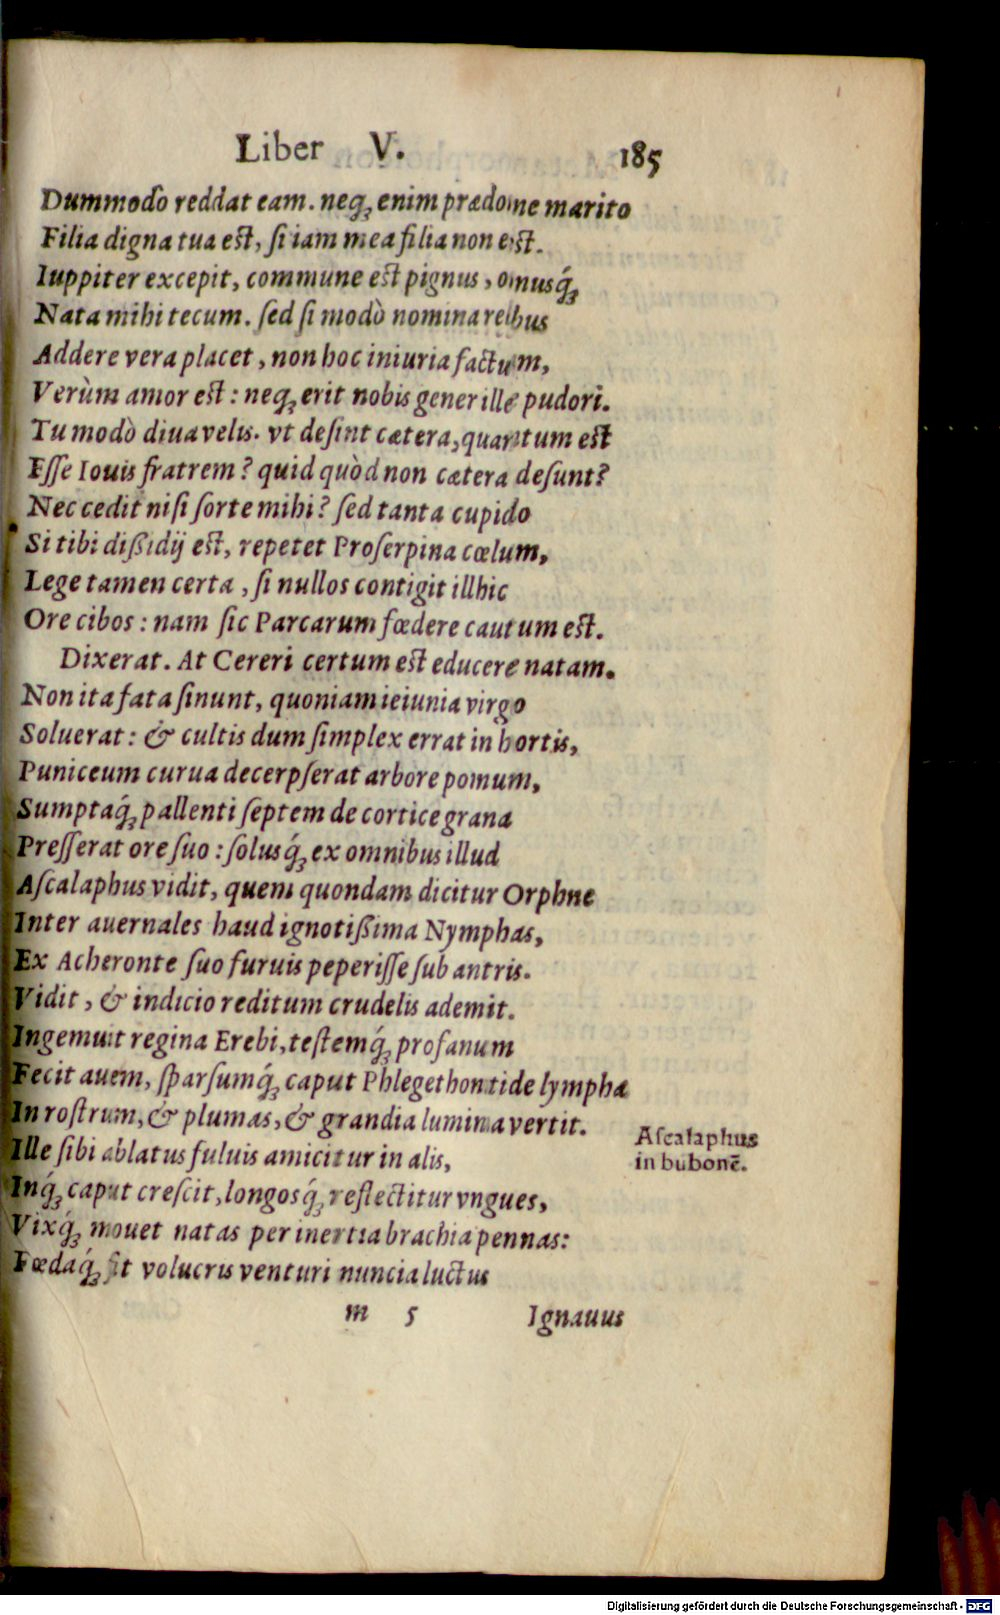 Liber V. 185
Dummodo reddat eam. neq; enim prædone marito
Filia digna tua est, si iam mea filia non est.
Iuppiter excepit, commune est pignus, onusq́;
Nata mihi tecum. sed si modò nomina rebus
Addere vera placet, non hoc iniuria factum,
Verùm amor est: neq; erit nobis gener ille pudori.
Tu modò diua velis. vt desint cætera, quantum est
Esse Iouis fratrem? quid quòd non cætera desunt?
Nec cedit nisi sorte mihi? sed tanta cupido
Si tibi dißidij est, repetet Proserpina cœlum,
Lege tamen certa, si nullos contigit illhic
Ore cibos: nam sic Parcarum fœdere cautum est.
Dixerat. At Cereri certum est educere natam.
Non ita fata sinunt, quoniam ieiunia virgo
Soluerat: & cultis dum simplex errat in hortis,
Puniceum curua decerpserat arbore pomum,
Sumptaq́; pallenti septem de cortice grana
Presserat ore suo: solusq́; ex omnibus illud
Ascalaphus vidit, quem quondam dicitur Orphne
Inter auernales haud ignotißima Nymphas,
Ex Acheronte suo furuis peperisse sub antris.
Vidit, & indicio reditum crudelis ademit.
Ingemuit regina Erebi, testemq́; profanum
Fecit auem, sparsumq́; caput Phlegethontide lympha
In rostrum, & plumas, & grandia lumina vertit.
Ascalaphus
in bubonē.
Ille sibi ablatus fuluis amicitur in alis,
Inq́; caput crescit, longosq́; reflectitur vngues,
Vixq́; mouet natas per inertia brachia pennas:
Fœdaq́; fit volucris venturi nuncia luctus
m 5 Ignauus
Digitalisierung gefördert durch die Deutsche Forschungsgemeinschaft - DFG